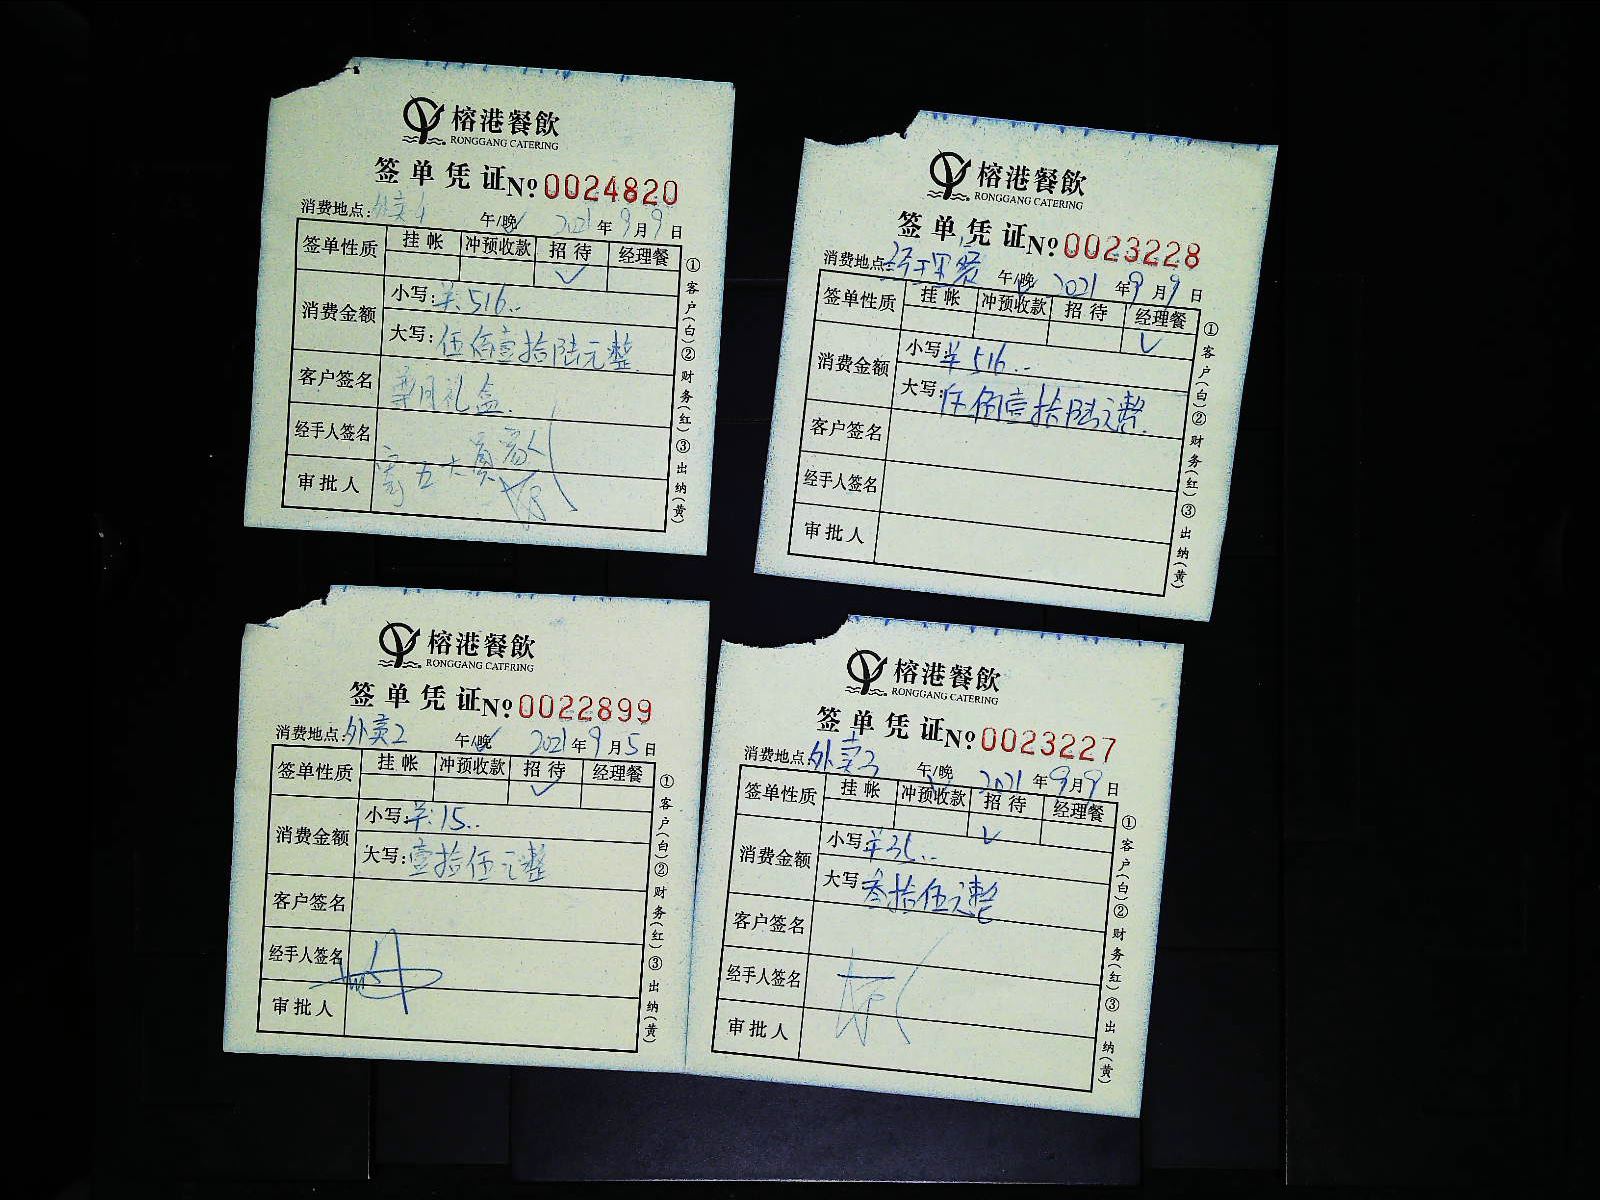 榕港餐飲
RONGGANG CATERING
签单凭证 № 0024820
消费地点: 外卖 午/晚 2021年9月9日
签单性质 挂帐 冲预收款 招待 经理餐
✓
消费金额 小写: 羊516..
大写: 伍佰壹拾陆元整
客户签名 月礼盒.
经手人签名
审批人
①客户(白)②财务(红)③出纳(黄)
榕港餐飲
RONGGANG CATERING
签单凭证 № 0023228
消费地点: 经理餐 午/晚 2021年9月9日
签单性质 挂帐 冲预收款 招待 经理餐
✓
消费金额 小写: 羊516..
大写: 伍佰壹拾陆元整
客户签名
经手人签名
审批人
①客户(白)②财务(红)③出纳(黄)
榕港餐飲
RONGGANG CATERING
签单凭证 № 0022899
消费地点: 外卖2 午/晚 2021年9月5日
签单性质 挂帐 冲预收款 招待 经理餐
✓
消费金额 小写: 羊:15..
大写: 壹拾伍元整
客户签名
经手人签名
审批人
①客户(白)②财务(红)③出纳(黄)
榕港餐飲
RONGGANG CATERING
签单凭证 № 0023227
消费地点: 外卖3 午/晚 2021年9月9日
签单性质 挂帐 冲预收款 招待 经理餐
✓
消费金额 小写: 羊35..
大写: 叁拾伍元整
客户签名
经手人签名
审批人
①客户(白)②财务(红)③出纳(黄)